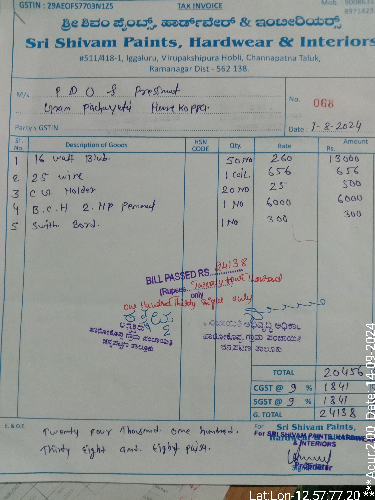 GSTIN : 29AEOFS7703N1Z5 TAX INVOICE
ಶ್ರೀ ಶಿವಂ ಪೈಂಟ್ಸ್, ಹಾರ್ಡ್‌ವೇರ್ & ಇಂಟೀರಿಯರ್ಸ್
Sri Shivam Paints, Hardware & Interiors
#511/418-1, Iggaluru, Virupakshipura Hobli, Channapatna Taluk,
Ramanagar Dist - 562 138.
M/s P D O & President
Gram Pachayathi
No. 068
Party's GSTIN
Date 9-8-2024
Sl. No. Description of Goods HSN CODE Qty. Rate Amount Rs.
1 16 watt Blub 50 NO 260 13000
2 25 wire 1 Coil 656 656
3 Holder 20 NO 25 500
4 B.C.H 2 HP 1 NO 6000 6000
5 Swith Bord. 1 NO 300 300
BILL PASSED RS. 24138
(Rupees
one Hundred Thirty eight only
only
TOTAL 20456
CGST @ 9 % 1841
SGST @ 9 % 1841
G. TOTAL 24138
E. & O.E.
Twenty four Thousand one hundred
Thirty Eight and Eighty paisa.
For Sri Shivam Paints,
For SRI SHIVAM PAINTS, HARDWARE
& INTERIORS
Proprietor
Lat:Lon-12.57:77.20
***Acur:2.00 Date:14-09-2024